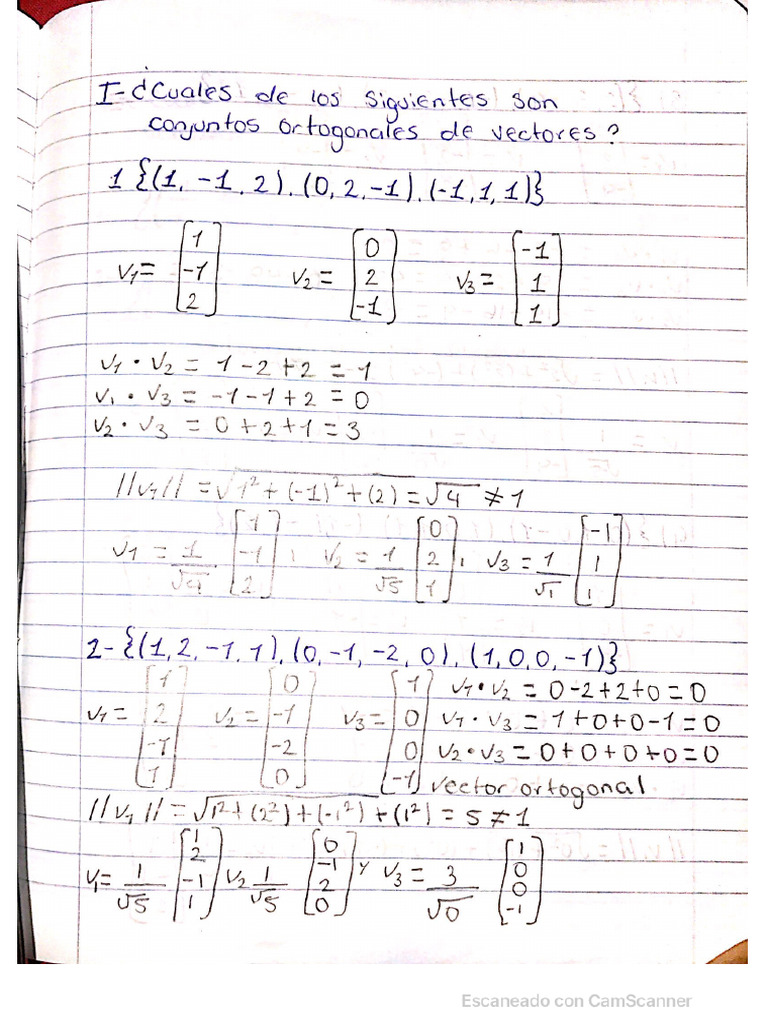 I-¿Cuales de los siguientes son
conjuntos ortogonales de vectores?
1 {(1, -1, 2), (0, 2, -1), (-1, 1, 1)}
V1 = [1 -1 2] V2 = [0 2 -1] V3 = [-1 1 1]
V1 • V2 = 1 - 2 + 2 = -1
V1 • V3 = -1 - 1 + 2 = 0
V2 • V3 = 0 + 2 + 1 = 3
//V1// = √1² + (-1)² + (2) = √4 ≠ 1
V1 = 1/√4 [1 -1 2], V2 = 1/√5 [0 2 1], V3 = 1/√1 [-1 1 1]
2- {(1, 2, -1, 1), (0, -1, -2, 0), (1, 0, 0, -1)}
V1 = [1 2 -1 1] V2 = [0 -1 -2 0] V3 = [1 0 0 -1]
V1 • V2 = 0 - 2 + 2 + 0 = 0
V1 • V3 = 1 + 0 + 0 - 1 = 0
V2 • V3 = 0 + 0 + 0 + 0 = 0
vector ortogonal
//V1// = √1² + (2²) + (-1²) + (1²) = 5 ≠ 1
V1 = 1/√5 [1 2 -1 1] V2 1/√5 [0 -1 2 0] y V3 = 3/√0 [1 0 0 -1]
Escaneado con CamScanner